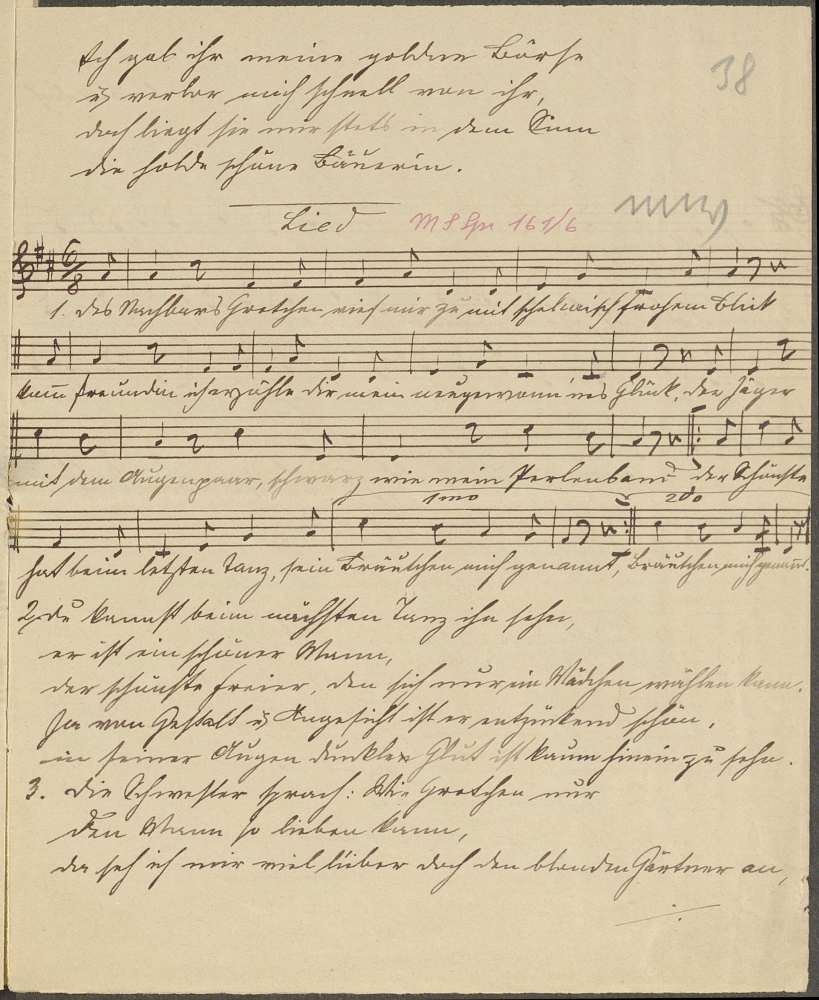 Ich gab ihr meine goldne Börse
u. verlor mich schnell von ihr,
doch liegt sie mir stets in dem Sinn
die holde schöne Bäuerin.
38
Lied
6/8
1. Des Nachbars Gretchen rief mir zu mit schelmisch frohem Blick
komm Freundin ich erzähle dir mein neugewonn'nes Glück, der Jäger
mit dem Augenpaar, schwarz wie mein Perlenband der Schönste
1mo 2do
hat beim letzten Tanz, sein Bräutchen mich genannt, Bräutchen mich genannt.
2. Du kannst beim nächsten Tanz ihn sehn,
er ist ein schöner Mann,
der schönste Freier, den sich nur ein Mädchen wählen kann.
Ja von Gestalt u. Angesicht ist er entzückend schön,
in seiner Augen dunkler Glut ist kaum hinein zu sehn.
3. Die Schwester sprach: Wie Gretchen nur
den Mann so lieben kann,
da seh ich mir viel lieber doch den blonden Gärtner an,